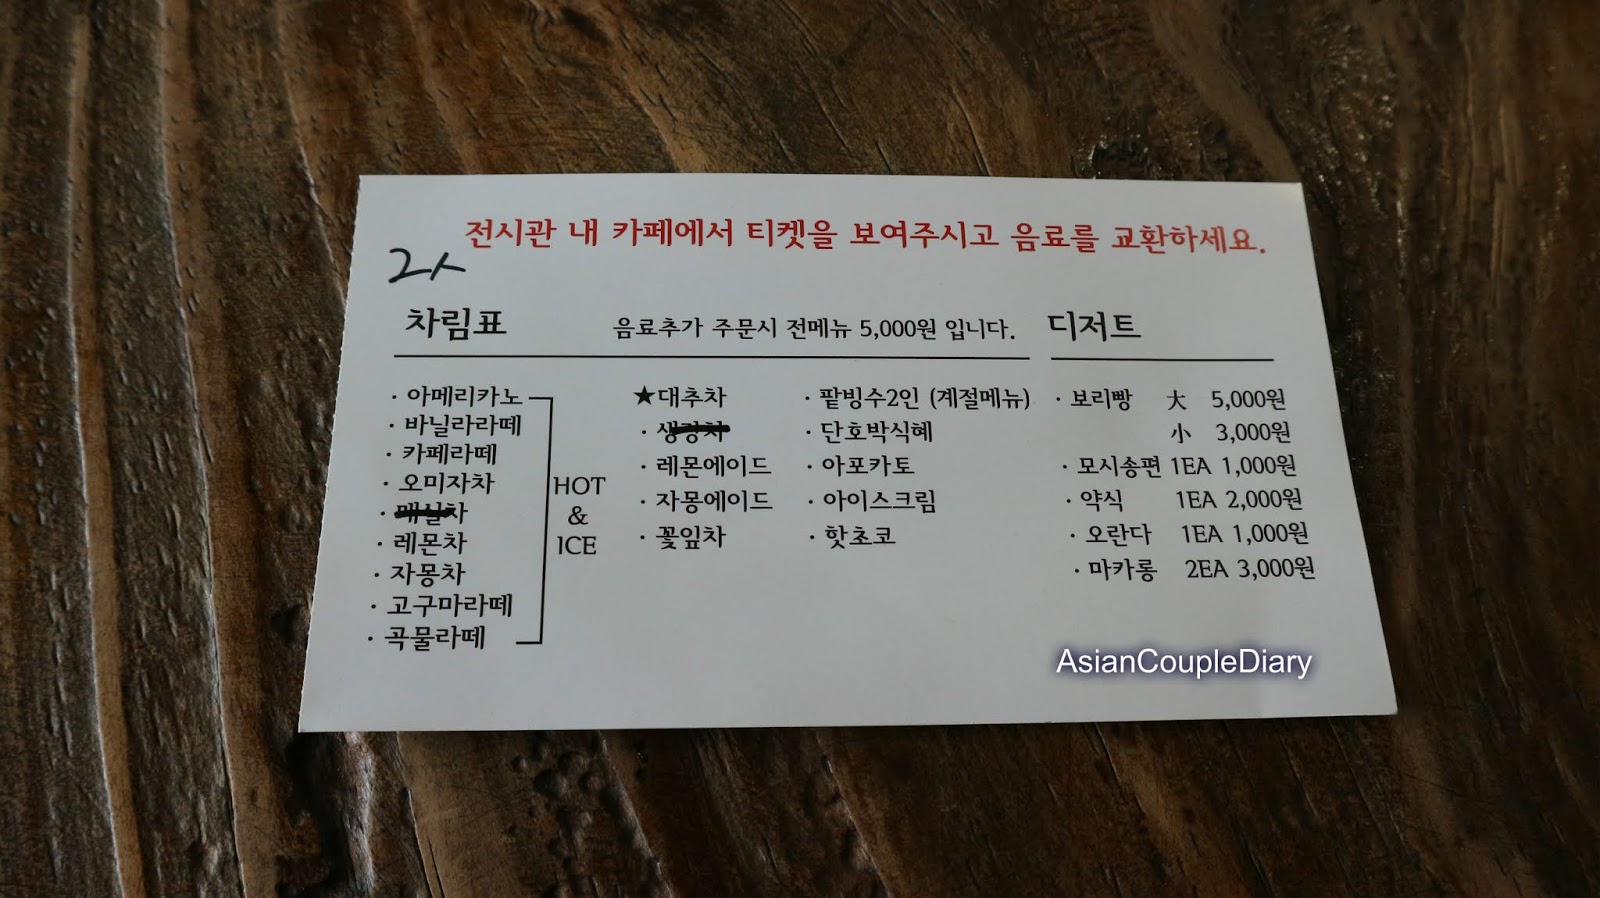 전시관 내 카페에서 티켓을 보여주시고 음료를 교환하세요.
2人
차림표 음료추가 주문시 전메뉴 5,000원 입니다.
· 아메리카노
· 바닐라라떼
· 카페라떼
· 오미자차
· 매실차
· 레몬차
· 자몽차
· 고구마라떼
· 곡물라떼
HOT
&
ICE
★대추차
· 생강차
· 레몬에이드
· 자몽에이드
· 꽃잎차
· 팥빙수2인 (계절메뉴)
· 단호박식혜
· 아포카토
· 아이스크림
· 핫초코
디저트
· 보리빵 大 5,000원
小 3,000원
· 모시송편 1EA 1,000원
· 약식 1EA 2,000원
· 오란다 1EA 1,000원
· 마카롱 2EA 3,000원
AsianCoupleDiary